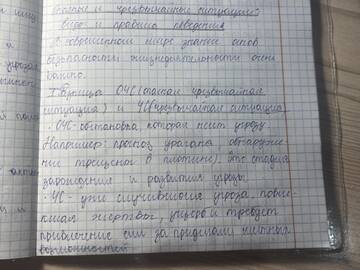 Опасные и чрезвычайные ситуации:
виды и правила поведения
В современном мире знание основ
безопасности жизнедеятельности очень
важно.
Разница ОЧС (опасная чрезвычайная
ситуация) и ЧС (чрезвычайная ситуация)
ОЧС - обстановка, которая несет угрозу.
Например: прогноз урагана обнаруже-
ние трещины в плотине). Это стадия
зарождения и развития угрозы.
ЧС - уже случившаяся угроза, повлё-
кшая жертвы, ущерб и требует
привлечение сил за пределами местных
возможностей